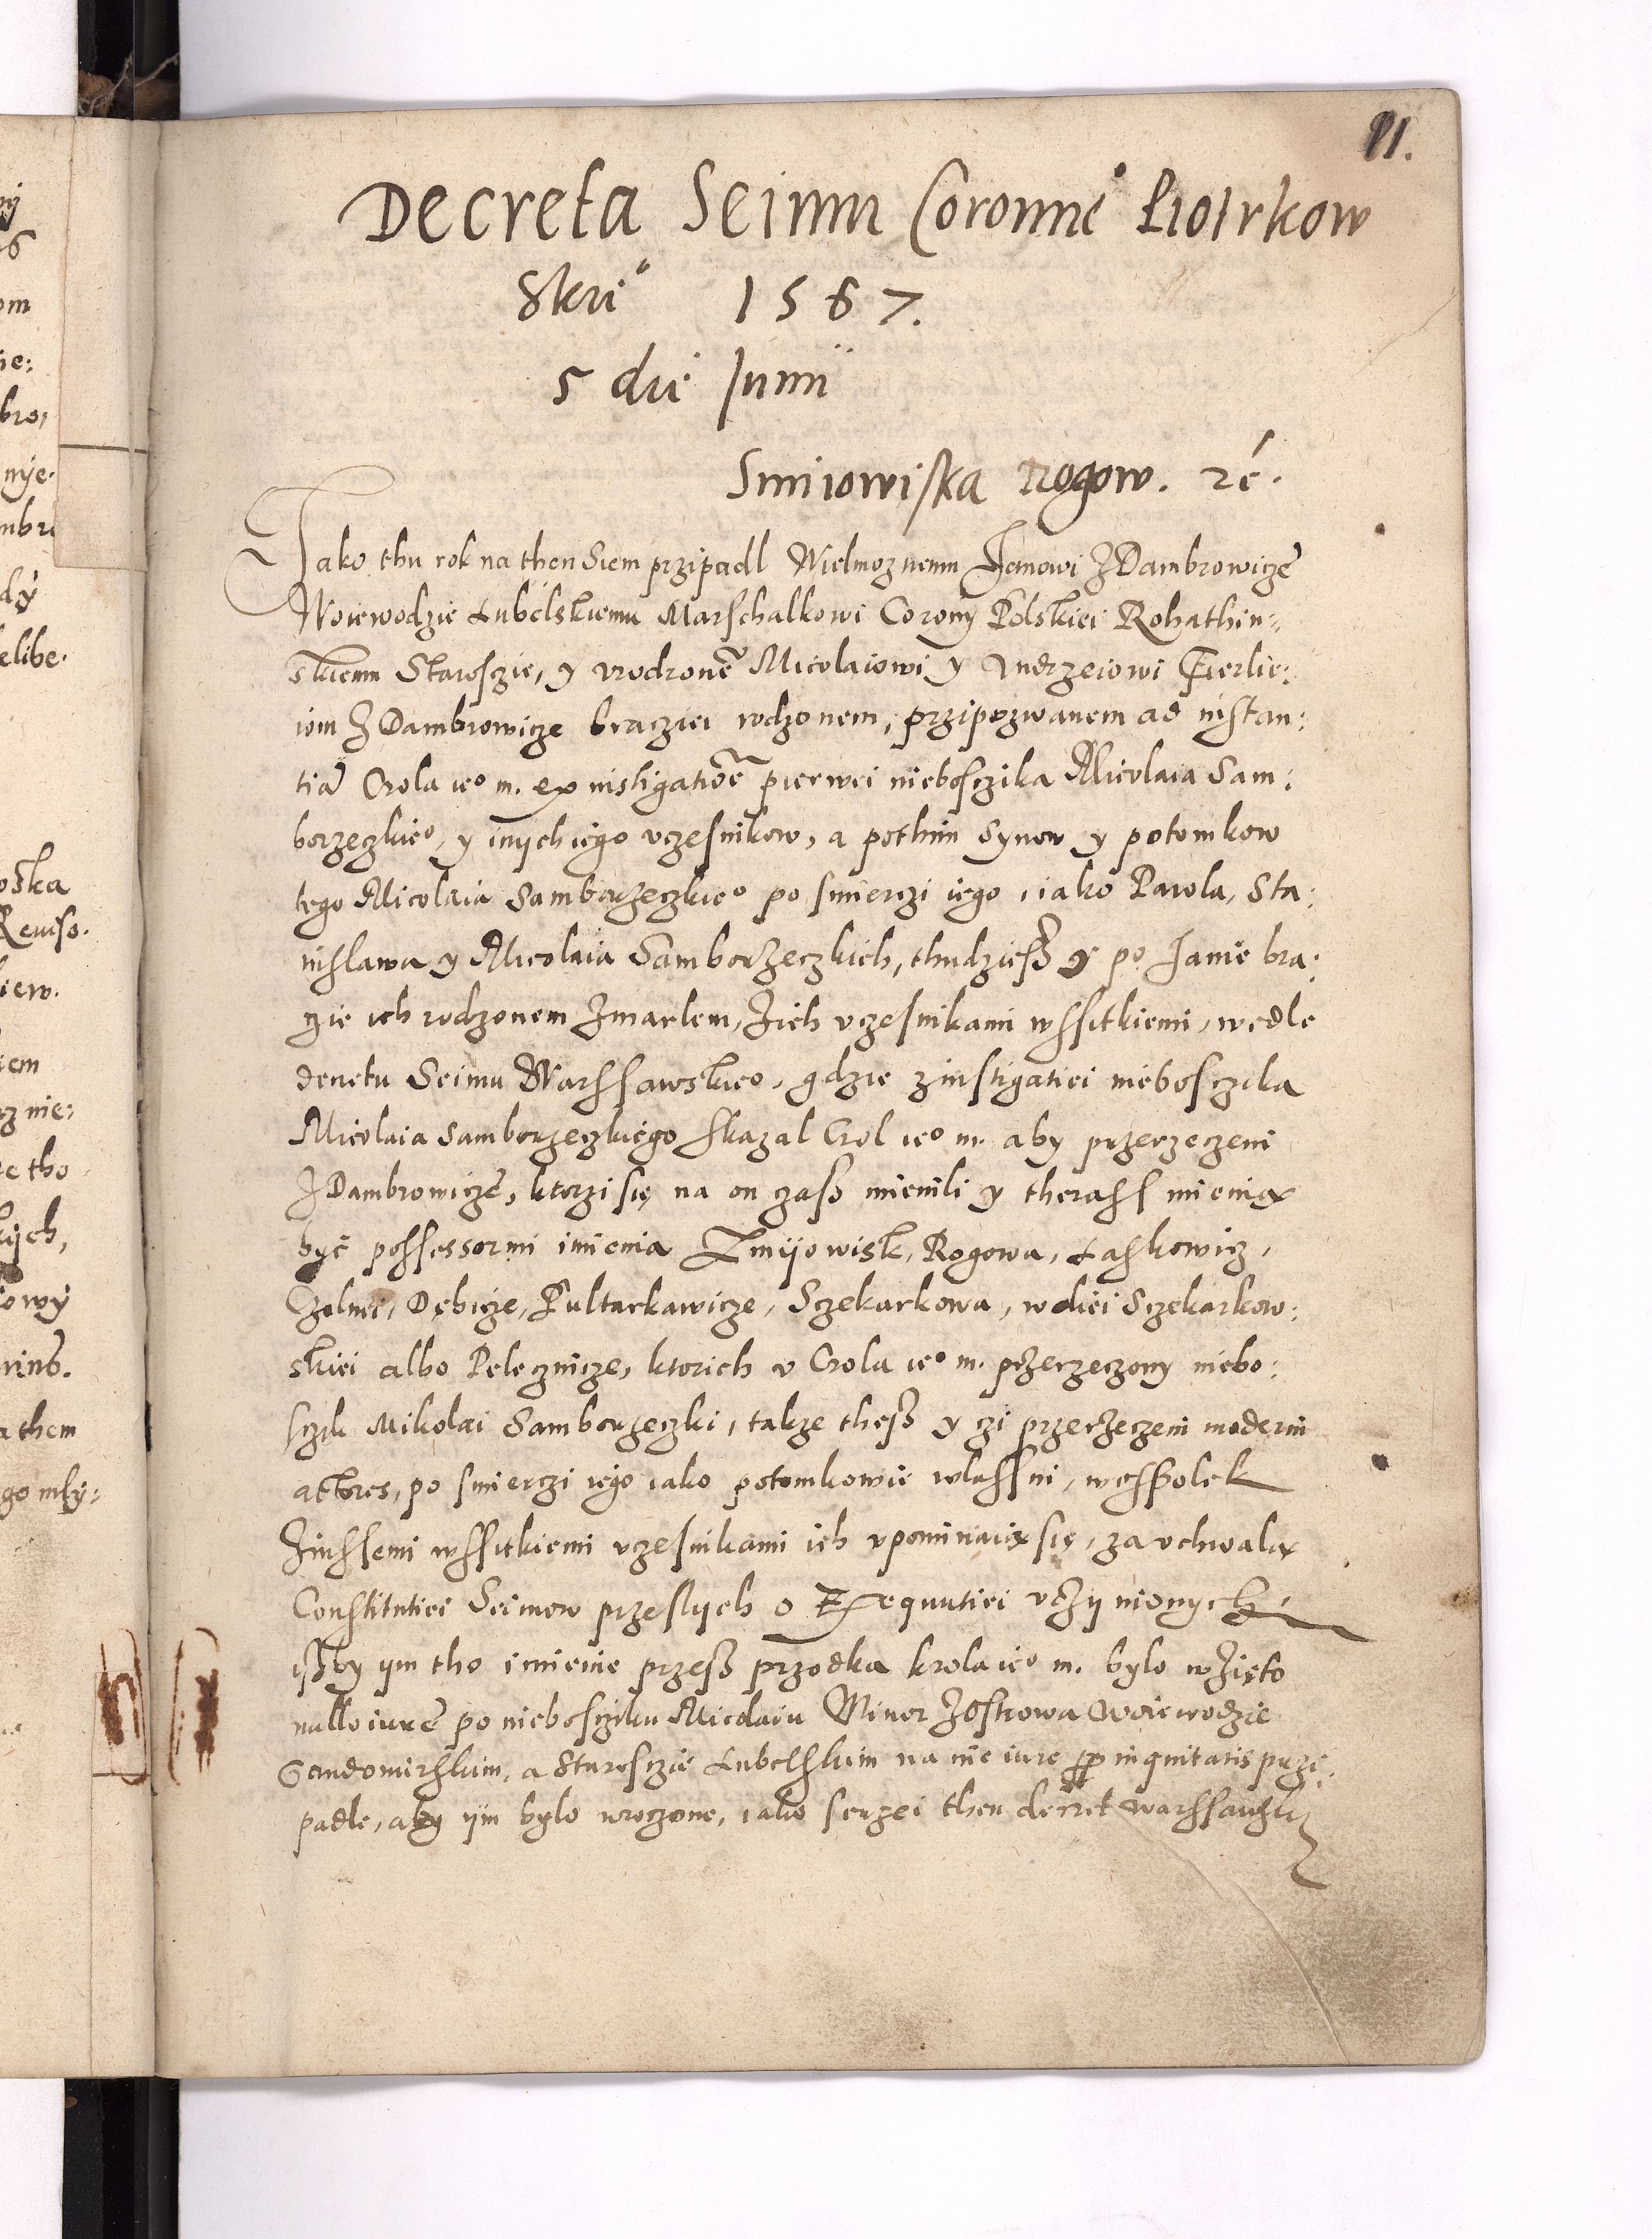 81.
Decreta Seimu Coronne° Piotrkow
skie° 1567.
5 die Junii
Smiiowiska Rogow. rć.
Jako thu rok na then Siem przipadl Wielmoznemu Janowi Z Dambrowicze
Woiewodzie Lubelskiemu Marschalkowi Corony Polskiei Rohathin=
skiemu Starosczie, y vrodzone͂ Micolaiowi y Andrzeiowi Fierlie:
iom Z Dambrowicze bracziei rodzonem, przipozwanem ad instan:
tiã Crola ie° m. ex instigatiõe pierwei niebosczika Micolaia Sam:
borzeczkie°, y inych iego vczesnikow, a pothim Synow y potomkow
tego Micolaia Samborzeczkie° po smierczi iego, iako Pawola, Sta:
nislawa y Micolaia Samborzeczkich, thudzieß y po Janie bra:
czie ich rodzonem Zmarlem, Z ich vczesnikami wssitkiemi, wedle
decretu Seimu Warssawskie°, gdzie z instigatiei niebosczika
Micolaia Samborzeczkiego skazal Crol ie° m. aby przerzeczeni
Z Dambrowicze, ktorzi się na on czaß mienili y therass mienią
być possessormi imienia Zmiiowisk, Rogowa, Laskowicz,
Czolmi, Dębicze, Pultarkawicze, Sczekarkowa, woliei Sczekarkow:
skiei albo Pelecznicze, ktorich v Crola ie° m. przerzeczony niebo:
sczik Mikolai Samborzeczki, takze theß y czi przerzeczeni moderni
actores, po smierczi iego iako potomkowie wlassni, wespolek
Z inssemi wssitkiemi vczesnikami ich vpominaią się, za vchwalą
Constitutiei Seimow przeslych o Exequutiei vczynionych,
ißby ym tho imienie przeß przodka krola ie° m. bylo wzięto
nullo iure po niebosciku Micolaiu Miner Z Ostrowa Woiewodzie
Sendomirskim, a Starosczie Lubelskim na nie iure propinquitatis przi:
padle, aby ym bylo wroczone, iako szerzei then decret warssawski